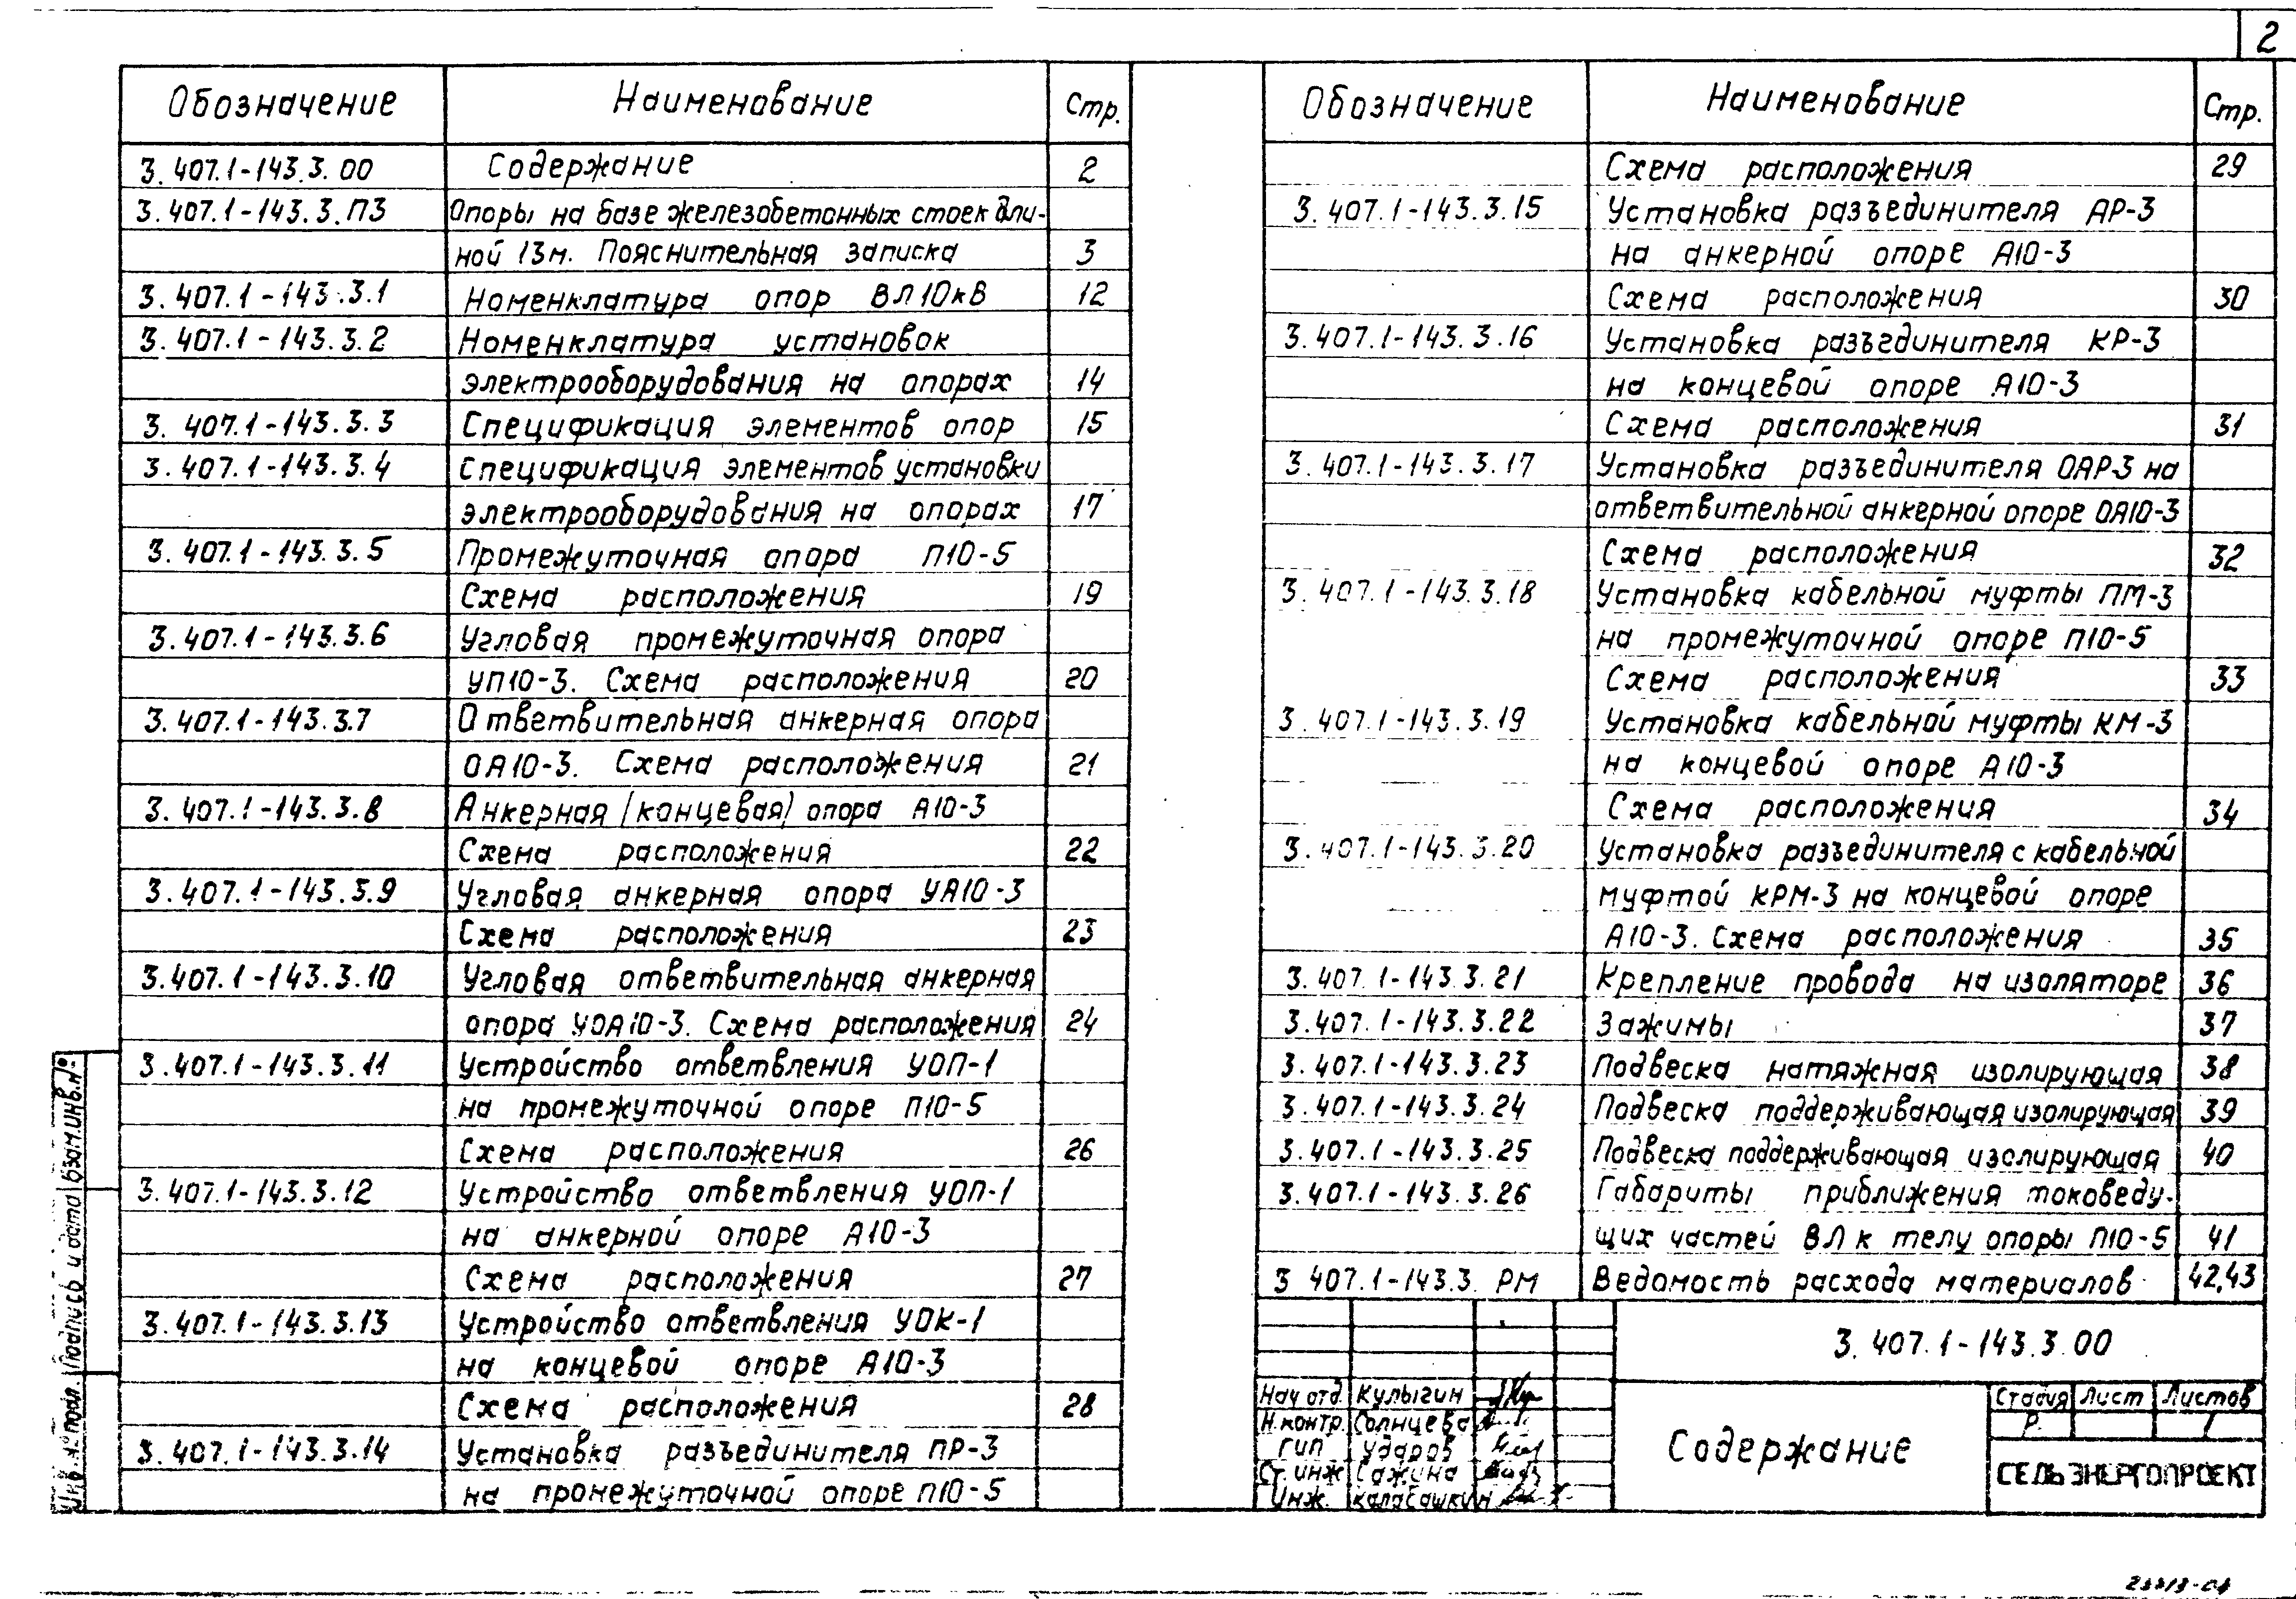 2
Обозначение Наименование Стр.
3.407.1-143.3.00 Содержание 2
3.407.1-143.3.ПЗ Опоры на базе железобетонных стоек дли-
ной 13м. Пояснительная записка 3
3.407.1-143.3.1 Номенклатура опор ВЛ10кВ 12
3.407.1-143.3.2 Номенклатура установок
электрооборудования на опорах 14
3.407.1-143.3.3 Спецификация элементов опор 15
3.407.1-143.3.4 Спецификация элементов установки
электрооборудования на опорах 17
3.407.1-143.3.5 Промежуточная опора П10-5
Схема расположения 19
3.407.1-143.3.6 Угловая промежуточная опора
УП10-3. Схема расположения 20
3.407.1-143.3.7 Ответвительная анкерная опора
ОА10-3. Схема расположения 21
3.407.1-143.3.8 Анкерная (концевая) опора А10-3
Схема расположения 22
3.407.1-143.3.9 Угловая анкерная опора УА10-3
Схема расположения 23
3.407.1-143.3.10 Угловая ответвительная анкерная
опора УОА10-3. Схема расположения 24
3.407.1-143.3.11 Устройство ответвления УОП-1
на промежуточной опоре П10-5
Схема расположения 26
3.407.1-143.3.12 Устройство ответвления УОП-1
на анкерной опоре А10-3
Схема расположения 27
3.407.1-143.3.13 Устройство ответвления УОК-1
на концевой опоре А10-3
Схема расположения 28
3.407.1-143.3.14 Установка разъединителя ПР-3
на промежуточной опоре П10-5
Обозначение Наименование Стр.
Схема расположения 29
3.407.1-143.3.15 Установка разъединителя АР-3
на анкерной опоре А10-3
Схема расположения 30
3.407.1-143.3.16 Установка разъединителя КР-3
на концевой опоре А10-3
Схема расположения 31
3.407.1-143.3.17 Установка разъединителя ОАР-3 на
ответвительной анкерной опоре ОА10-3
Схема расположения 32
3.407.1-143.3.18 Установка кабельной муфты ПМ-3
на промежуточной опоре П10-5
Схема расположения 33
3.407.1-143.3.19 Установка кабельной муфты КМ-3
на концевой опоре А10-3
Схема расположения 34
3.407.1-143.3.20 Установка разъединителя с кабельной
муфтой КРМ-3 на концевой опоре
А10-3. Схема расположения 35
3.407.1-143.3.21 Крепление провода на изоляторе 36
3.407.1-143.3.22 Зажимы 37
3.407.1-143.3.23 Подвеска натяжная изолирующая 38
3.407.1-143.3.24 Подвеска поддерживающая изолирующая 39
3.407.1-143.3.25 Подвеска поддерживающая изолирующая 40
3.407.1-143.3.26 Габариты приближения токоведу-
щих частей ВЛ к телу опоры П10-5 41
3 407.1-143.3. РМ Ведомость расхода материалов 42,43
3.407.1-143.3.00
Нач отд. Кулыгин
Н.контр. Солнцева
ГИП Ударов
Ст. инж Сажина
Инж. Калабашкин
Содержание
Стадия Лист Листов
Р. 1
СЕЛЬЭНЕРГОПРОЕКТ
Инв. № подл. Подпись и дата Взам.инв.№